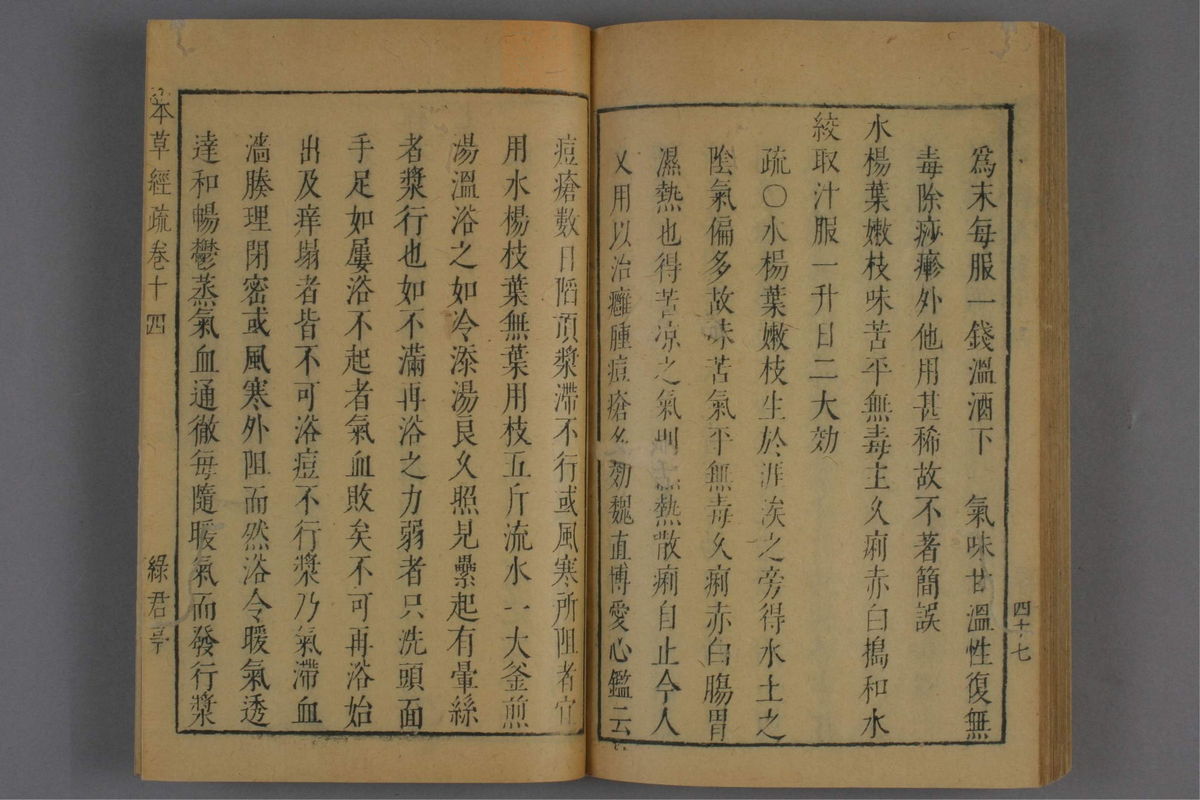 爲末每服一錢溫酒下　氣味甘溫性復無
毒除痧瘮外他用甚稀故不著簡誤
水楊葉嫩枝味苦平無毒主久痢赤白搗和水
絞取汁服一升日二大効
疏〇水楊葉嫩枝生於涯涘之旁得水土之
陰氣偏多故味苦氣平無毒久痢赤白腸胃
濕熱也得苦凉之氣則濕熱散痢自止今人
又用以治癰腫痘瘡多効魏直博愛心鑑云
四十七
痘瘡數日陷頂漿滯不行或風寒所阻者宜
用水楊枝葉無葉用枝五斤流水一大釜煎
湯溫浴之如冷添湯良久照見纍起有暈絲
者漿行也如不滿再浴之力弱者只洗頭面
手足如屢浴不起者氣血敗矣不可再浴始
出及痒塌者皆不可浴痘不行漿乃氣滯血
濇腠理閉密或風寒外阻而然浴令暖氣透
達和暢鬱蒸氣血通徹每隨暖氣而發行漿
本草經疏卷十四　綠君亭